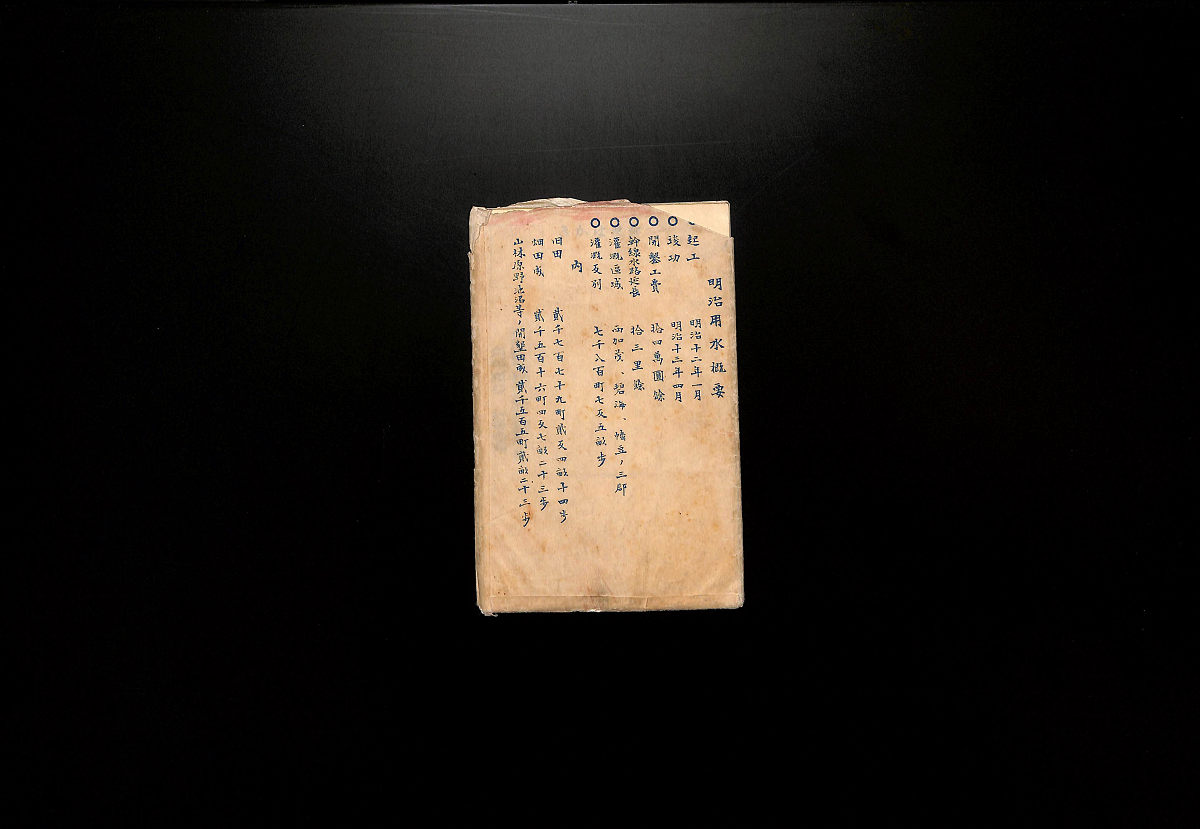 明治用水概要
○起工 明治十二年一月
○竣功 明治十三年四月
○開鑿工費 拾四萬圓餘
○幹線水路延長 拾三里餘
○灌漑區域 西加茂、碧海、幡豆ノ三郡
○灌漑反別 七千八百町七反五畝歩
內
旧田 貳千七百七十九町貳反四畝十四歩
畑田成 貳千五百十六町四反七畝二十三歩
山林原野池沼等ノ開墾田成 貳千五百五町貳畝二十三歩